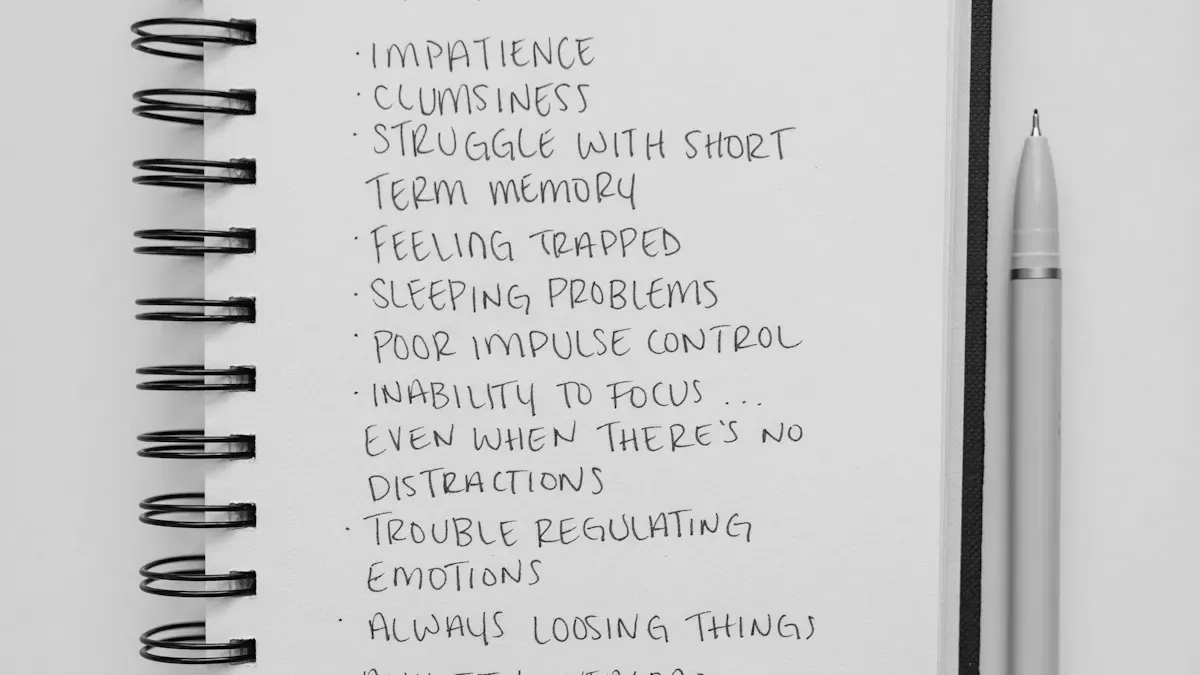 · IMPATIENCE
· CLUMSINESS
· STRUGGLE WITH SHORT
TERM MEMORY
· FEELING TRAPPED
· SLEEPING PROBLEMS
· POOR IMPULSE CONTROL
· INABILITY TO FOCUS ...
EVEN WHEN THERE'S NO
DISTRACTIONS
· TROUBLE REGULATING
EMOTIONS
· ALWAYS LOOSING THINGS